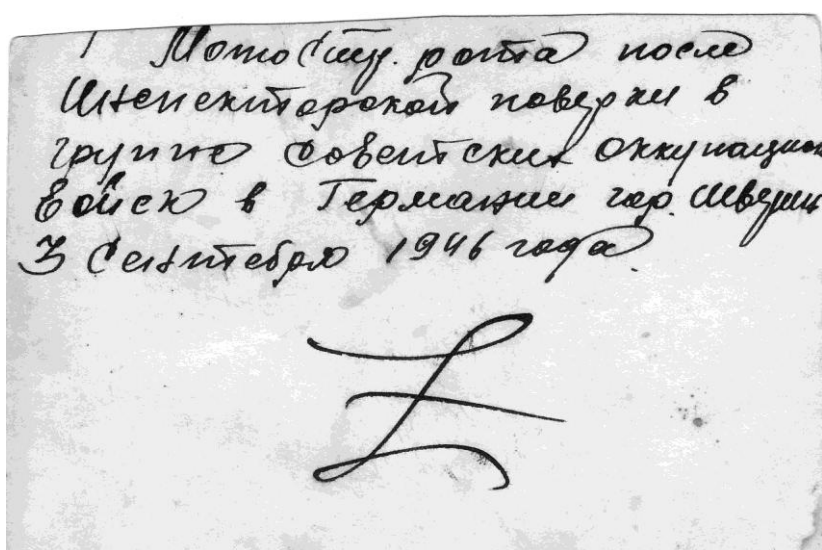 Мото стр. рота после
Инспекторской поверки в
группе советских оккупацион
войск в Германии гор. Шверин
3 сентября 1946 года.